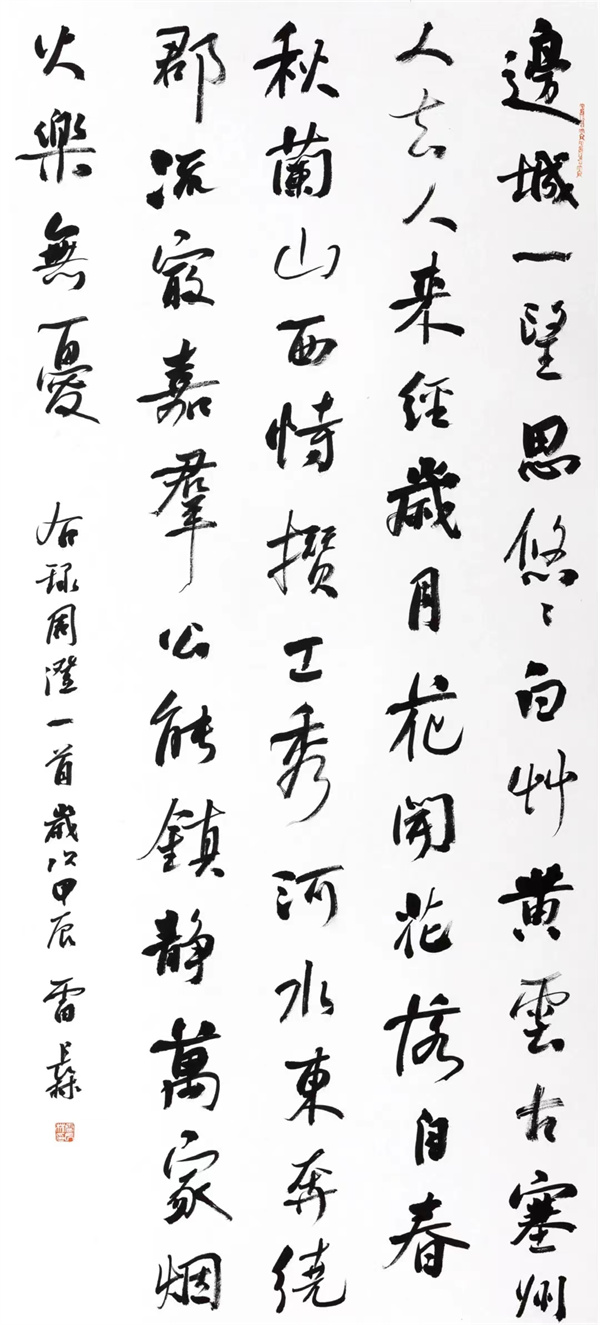 邊城一望思悠〻白艸黄雲古塞州
人去人来經歲月花開花落自春
秋蘭山西峙攢工秀河水東奔繞
郡流最嘉羣公能鎮静萬家烟
火樂無憂
右録周澄一首歲次甲辰 雷